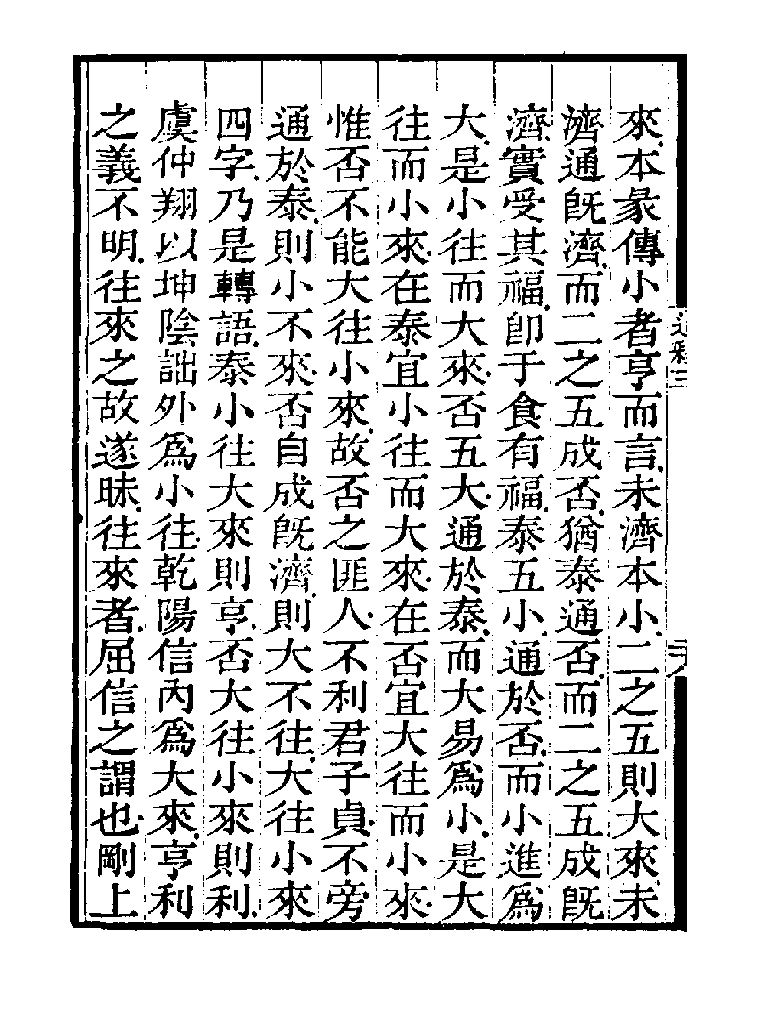 來本彖傳小者亨而言未濟本小二之五則大來未
濟通旣濟而二之五成否猶泰通否而二之五成旣
濟實受其福卽于食有福泰五小通於否而小進爲
大是小往而大來否五大通於泰而大易爲小是大
往而小來在泰宜小往而大來在否宜大往而小來
惟否不能大往小來故否之匪人不利君子貞不旁
通於泰則小不來否自成旣濟則大不往大往小來
四字乃是轉語泰小往大來則亨否大往小來則利
虞仲翔以坤陰詘外爲小往乾陽信內爲大來亨利
之義不明往來之故遂昧往來者屈信之謂也剛上